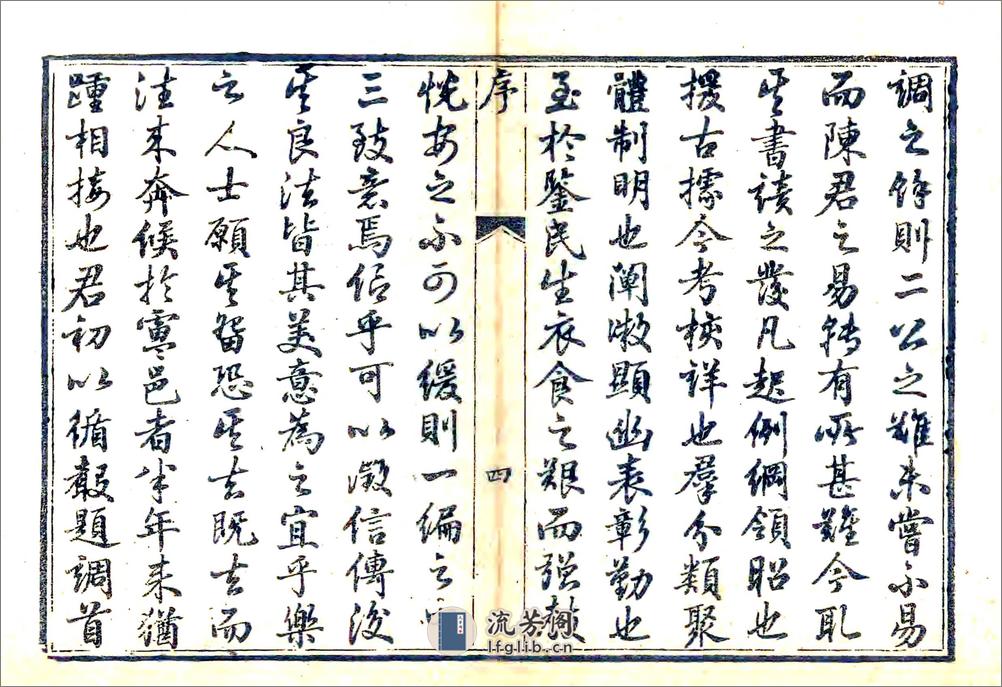 調之餘則二公之難未嘗不易
而陳君之易轉有所甚難今取
其書讀之發凡起例綱領昭也
援古據今考核詳也羣分類聚
體制明也闡微顯幽表彰勤也
至於鑒民生衣食之艱而強教
序
四
悅安之不可以緩則一編之
三致意焉信乎可以徵信傳後
其良法皆其美意為之宜乎樂
之人士願其留恐其去既去而
往來奔候於邑者半年來猶
踵相接也君初以循聲題調首
流芳阁
lfglib.cn